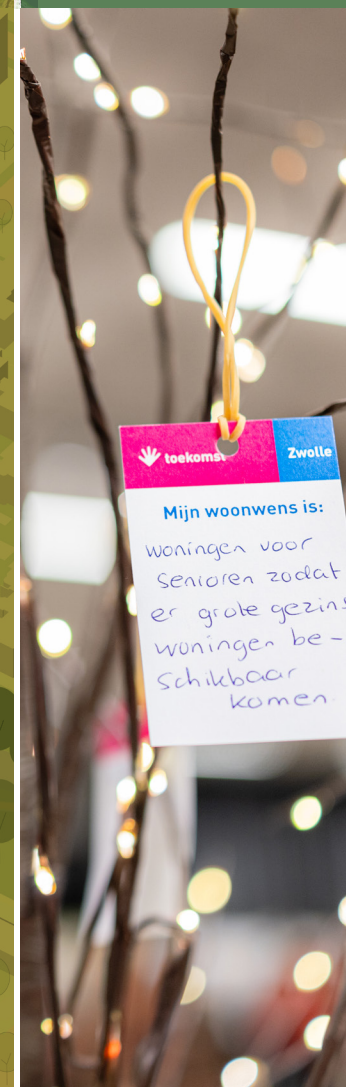 toekomst Zwolle
Mijn woonwens is:
woningen voor
senioren zodat
er grote gezins
woningen be-
schikbaar
komen.